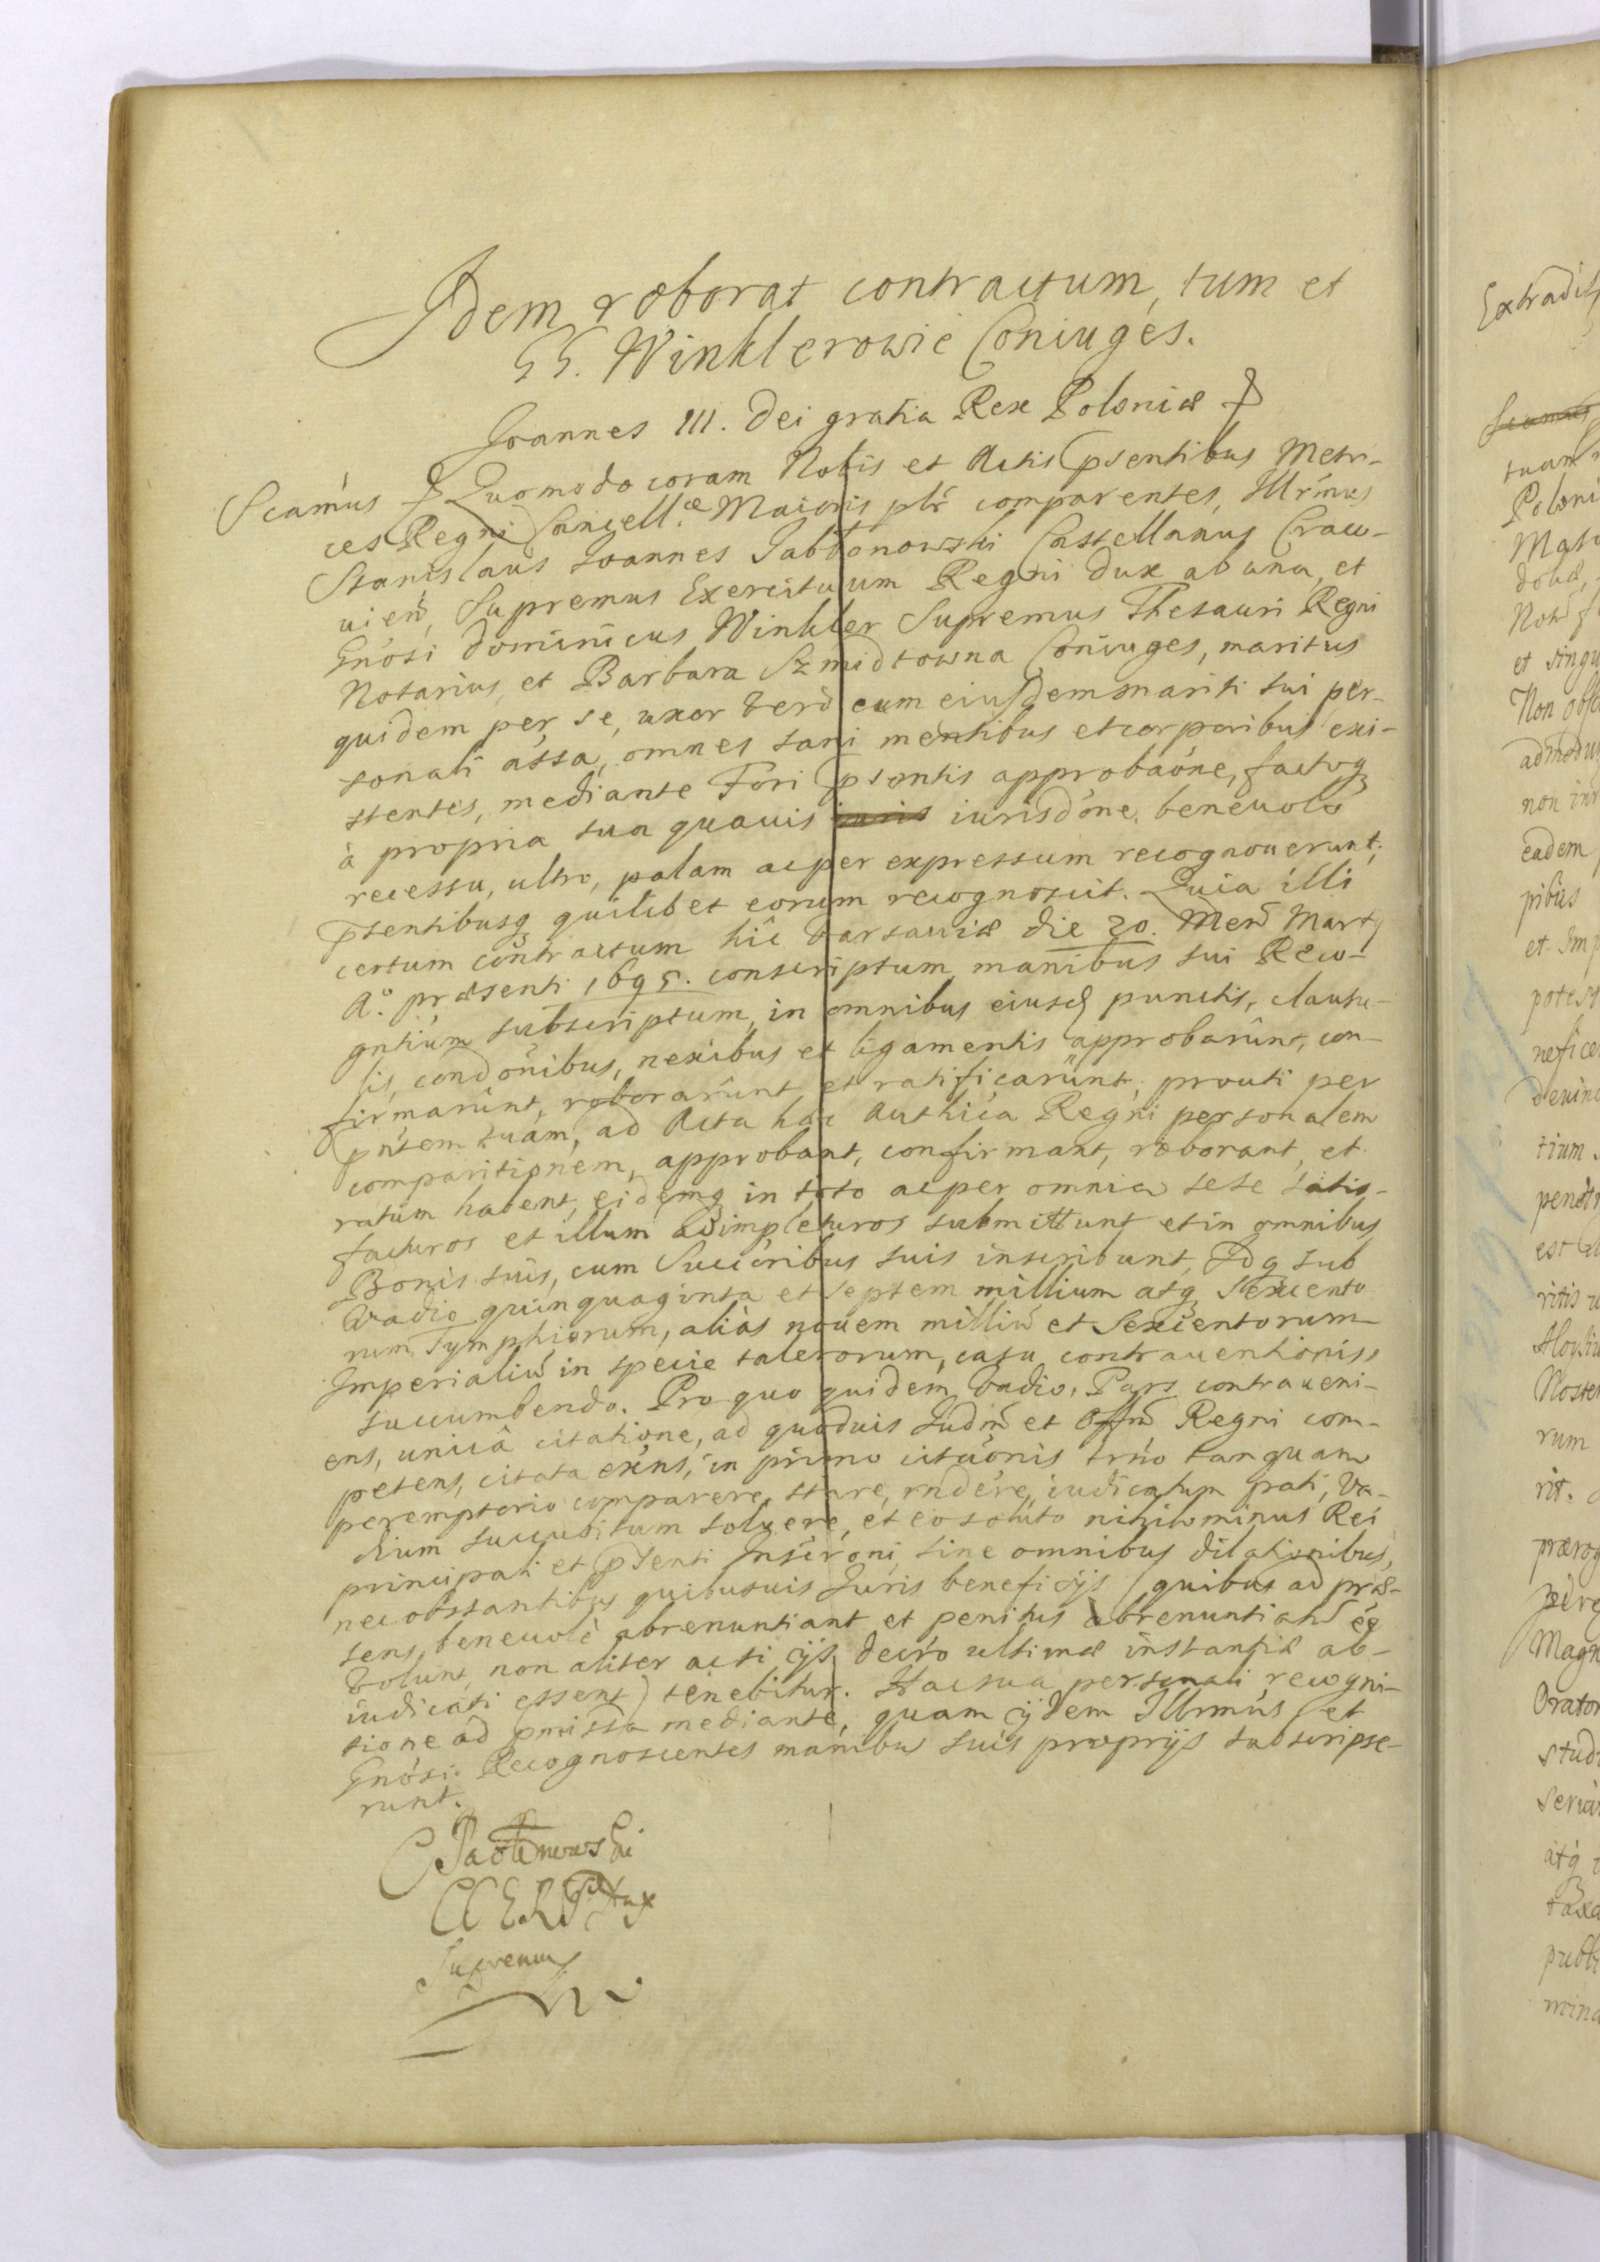 Idem roborat contractum, tum et
GG. Winklerowie Coniuges.
Joannes III. Dei gratia Rex Poloniæ
Scamus Quomodo coram Nobis et Actis psentibus Metri-
ces Regni Cancell.æ Maioris plr comparentes, Illrmus
Stanislaus Joannes Jabłonowski Castellanus Craco-
uien, Supremus Exercituum Regni Dux ab una, et
Gnosi Dominicus Winkler Supremus Thesauri Regni
Notarius, et Barbara Szmidtowna Coniuges, maritus
quidem per se, uxor verò cum eiusdem mariti sui per-
sonali assa, omnes sani mentibus et corporibus exi-
stentes, mediante Fori psentis approbaone, factoq
à propria sua quauis iurisdone beneuolo
recessu, ultro, palam ac per expressum recognouerunt,
psentibusq quilibet eorum recognoscit. Quia illi
certum contractum hic Varsauiæ die 20. Men Martij
A.o præsenti 1695. conscriptum manibus sui Reco-
gntium subscriptum, in omnibus eiusd punctis, clausu-
lis, condonibus, nexibus et ligamentis approbarunt, con-
firmarunt, roborarunt et ratificarunt, prouti per
pntem suam, ad Acta hæc Authica Regni personalem
comparitionem, approbant, confirmant, roborant, et
ratum habent, eidemq in toto ac per omnia sese satis-
facturos et illum adimpleturos submittunt et in omnibus
Bonis suis, cum Succoribus suis inscribunt, Idq sub
Vadio quinquaginta et septem millium atq Sexcento
rum Tymphiorum, aliàs nouem milliu et Sexcentorum
Imperialiu in specie talerorum, casu contrauentionis
succumbendo. Pro quo quidem Vadio, Pars contraueni-
ens, unicâ citatione, ad quoduis Judm et Offm Regni com-
petens, citata exns, in primo citaonis trno tanquam
peremptorio comparere, stare, rndere, iudicatum pati, Va-
dium succubitum soluere, et eo soluto nihilominus Rei
principali et psenti Inscroni, sine omnibus dilationibus,
nec obstantibus quibusuis Juris beneficijs (quibus ad præ-
sens beneuolè abrenuntiant et penitus abrenuntiati ee
Volunt, non aliter ac si ijs decro ultimæ instantiæ ab-
iudicati essent) tenebitur. Hac sua personali recogni-
tione ad pmissa mediante, quam ijdem Illrmus et
Gnosi Recognoscentes manibus suis proprijs subscripse-
runt.
Jabłonowski
Supremus
Extradit
suam
Poloni
non
eadem
pibus
et Imp
potest
nefice
devinc
tium
ritis
Noster
rum
rit.
Magn
Orator
stud
atq
mina